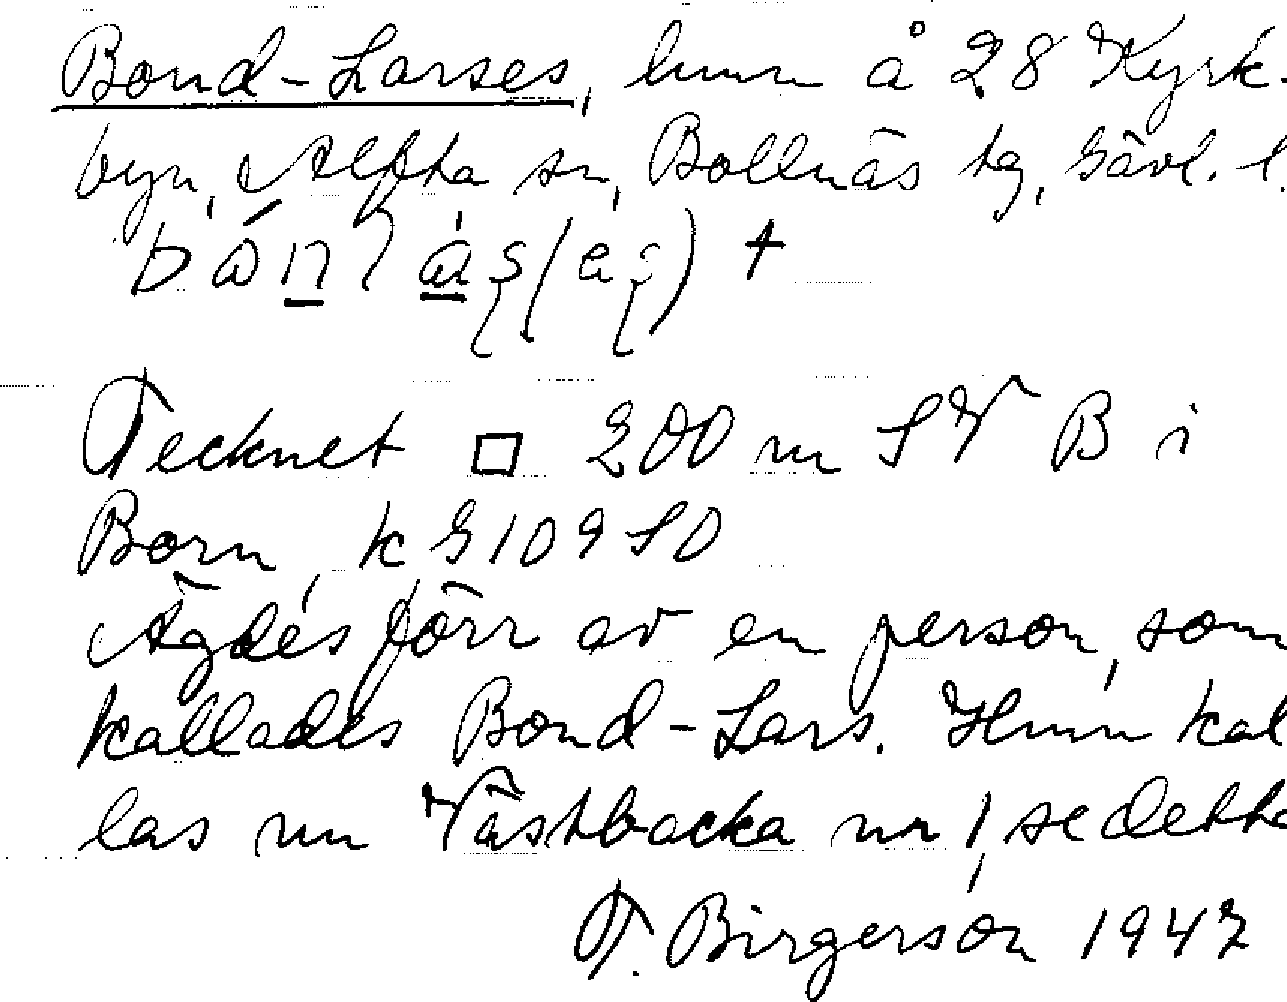 Bond-Larses, hmn å 28 Kyrk-
byn, Alfta sn, Bollnäs tg, Gävl. l.
Tecknet □ 200 m SV B i
Born, k G 109 SO
Ägdes förr av en person, som
kallades Bond-Lars. Hmn kal
las nu Västbacka nr 1, se detta
T. Birgerson 1942